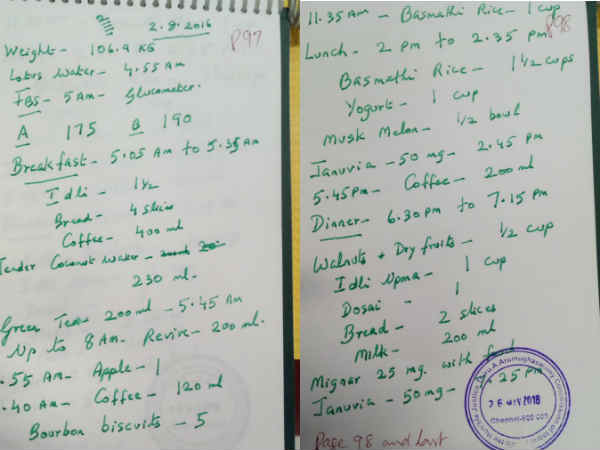 2
2.8.2016
P97
Weight - 106.9 KG
Lotus water - 4.55 AM
FBS - 5 AM - Glucometer.
A 175 B 190
Breakfast - 5.05 AM to 5.35 AM
Idli - 1½
Bread - 4 slices
Coffee - 400 ml
Tender Coconut water -
230 ml.
Green Tea 200 ml - 5.45 AM
Up to 8 AM. Revive - 200 ml.
.55 AM - Apple - 1
.40 AM - Coffee - 120 ml
Bourbon biscuits - 5
11.35 AM - Basmathi Rice - 1 cup
P98
Lunch - 2 PM to 2.35 PM
Basmathi Rice - 1 1/2 cups
Yogurt - 1 cup
Musk Melon - ½ bowl
Januvia - 50 mg - 2.45 PM
5.45 PM - Coffee - 200 ml
Dinner - 6.30 PM to 7.15 PM
Walnuts + Dry fruits - ½ cup
Idli Upma - 1 cup
Dosai - 1
Bread - 2 slices
Milk - 200 ml
Mignar 25 mg. with food
Januvia - 50 mg - .25 PM
26 MAY 2018
Chennai-600 005
Page 98 and last